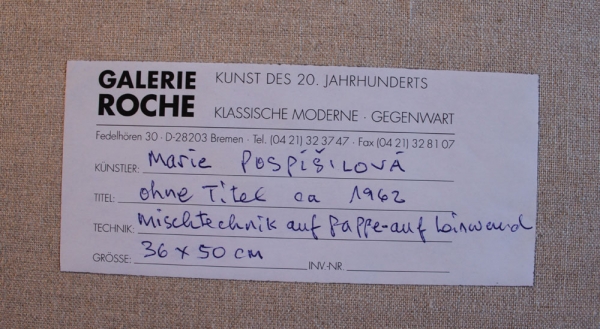 GALERIE KUNST DES 20. JAHRHUNDERTS
ROCHE KLASSISCHE MODERNE · GEGENWART
Fedelhören 30 · D-28203 Bremen · Tel. (04 21) 32 37 47 · Fax (04 21) 32 81 07
KÜNSTLER: Marie POSPÍŠILOVÁ
TITEL: ohne Titel ca 1962
TECHNIK: Mischtechnik auf Pappe-auf Leinwand
GRÖSSE: 36 x 50 cm INV.-NR.